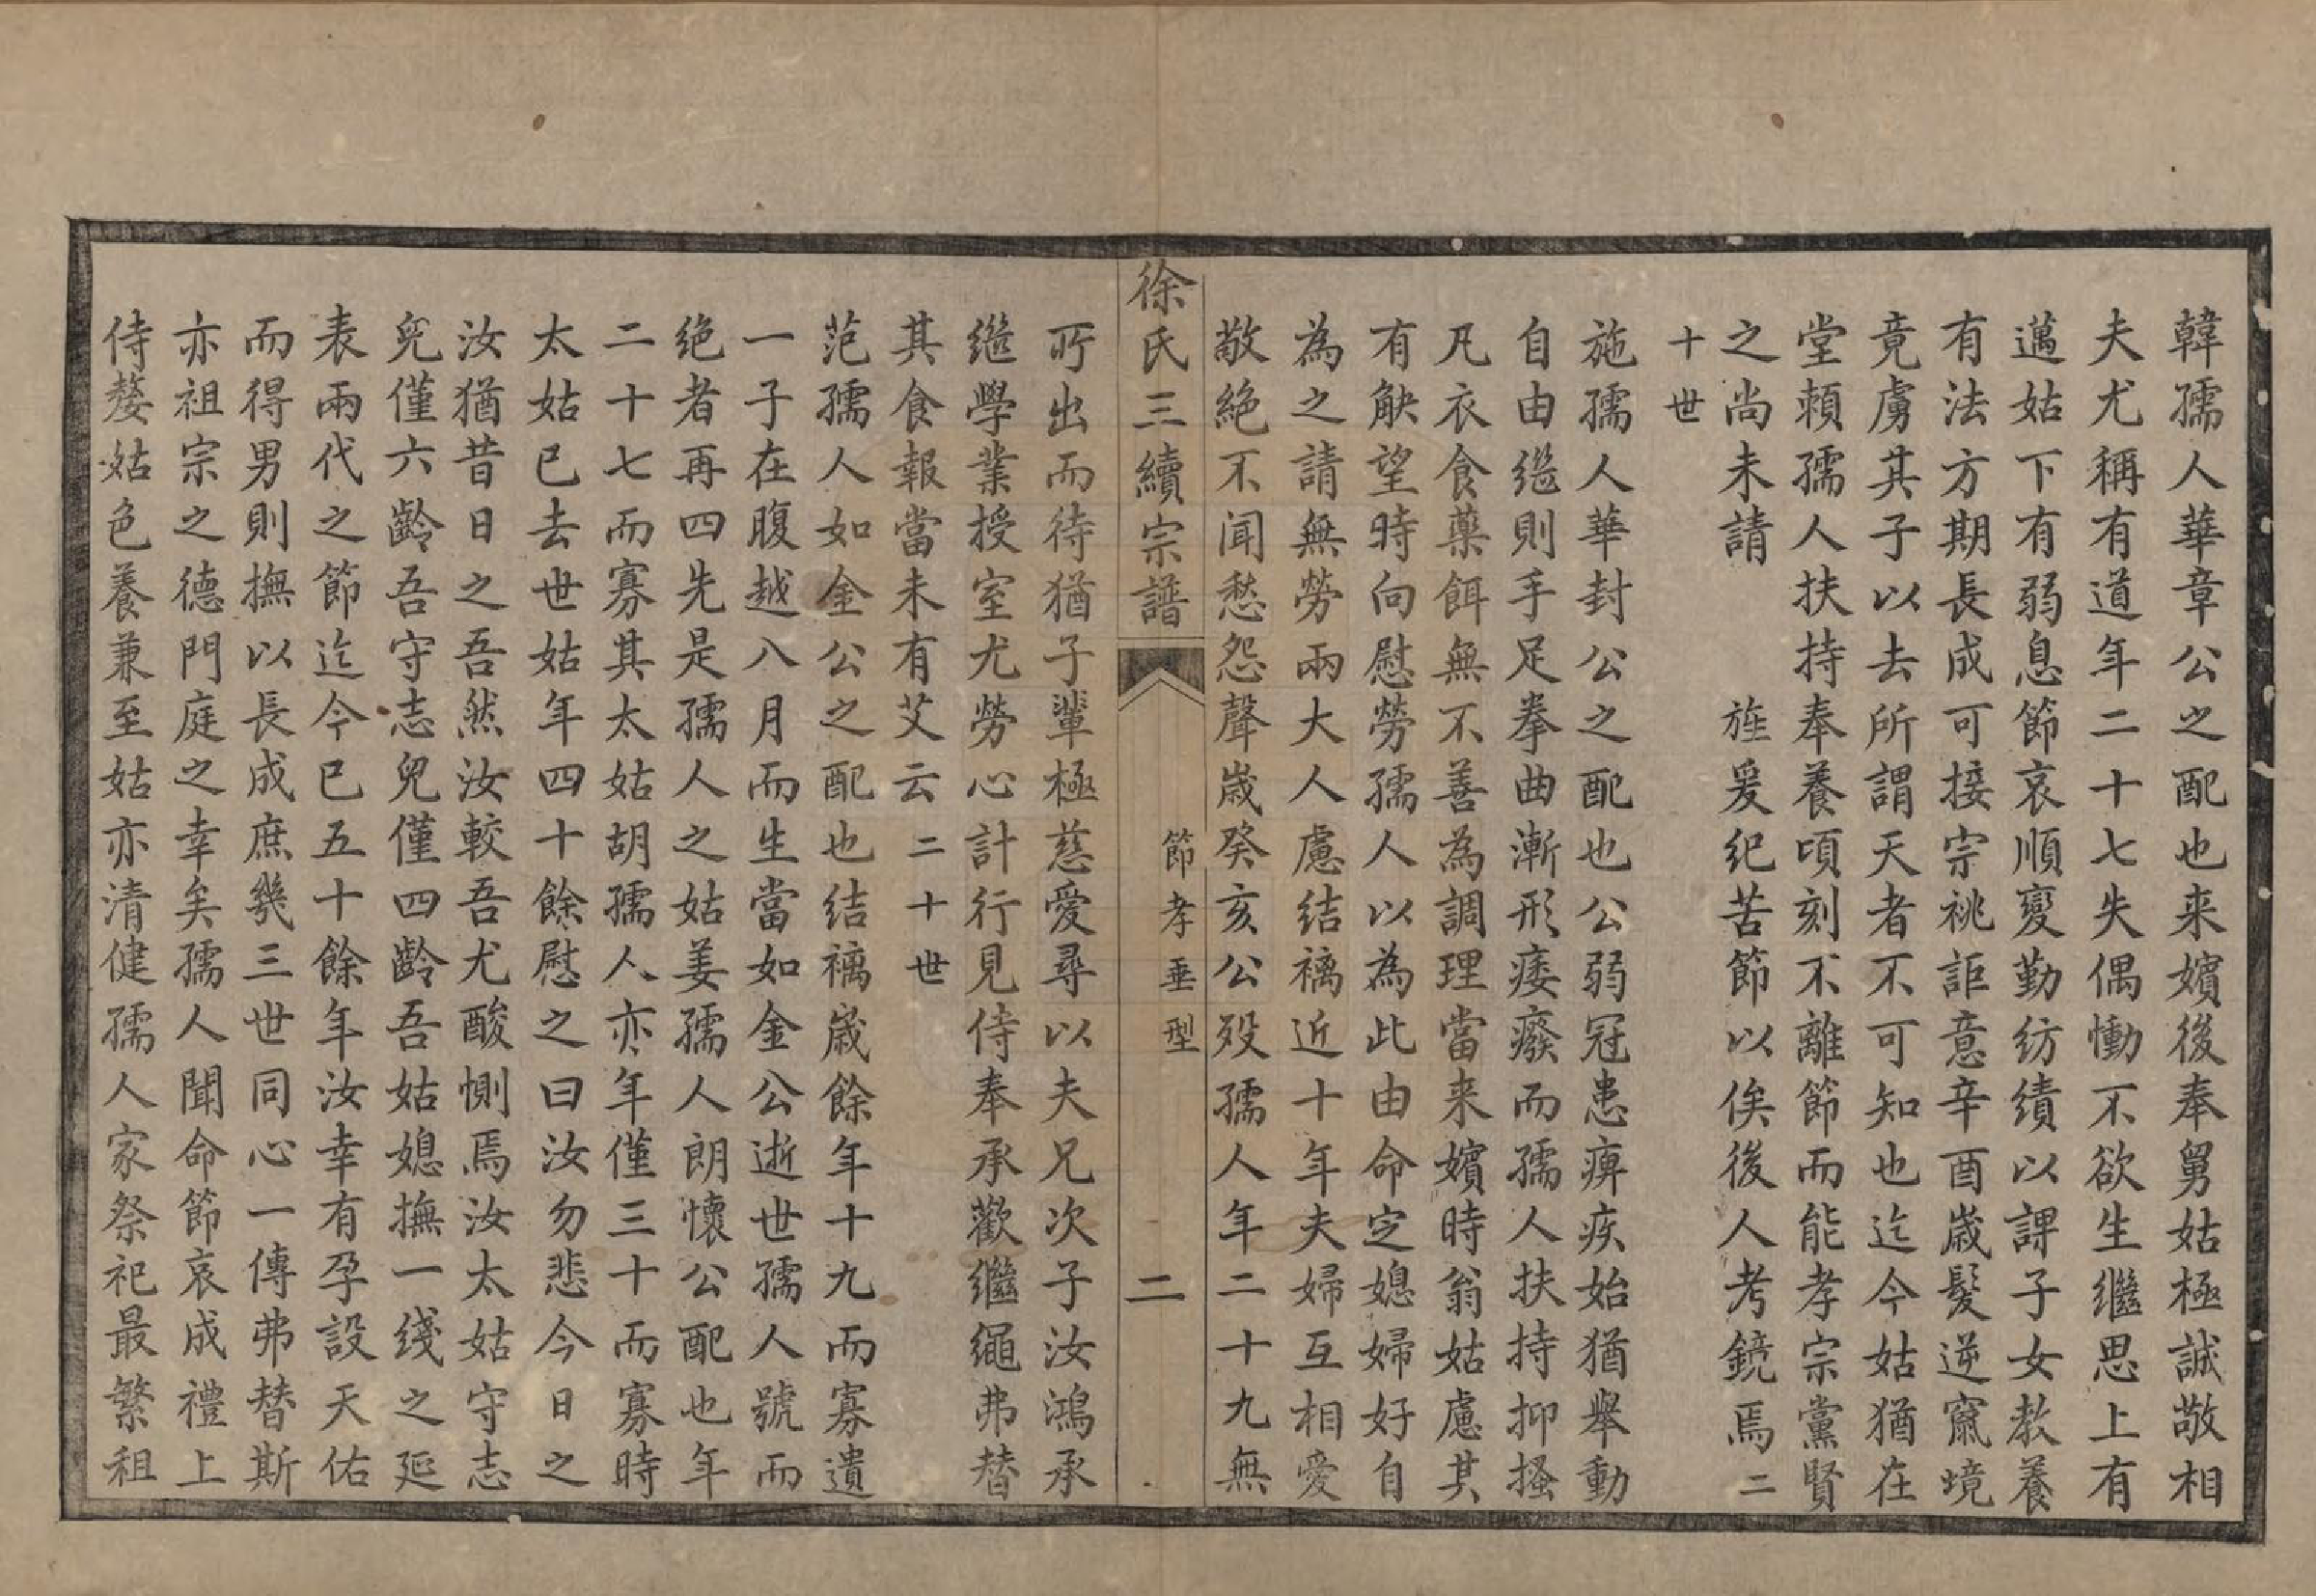 韓孺人華章公之配也来嬪後奉舅姑極誠敬相
夫尤稱有道年二十七失偶慟不欲生繼思上有
邁姑下有弱息節哀順變勤紡績以課子女教養
有法方期長成可接宗祧詎意辛酉歲髮逆竄境
竟虜其子以去所謂天者不可知也迄今姑猶在
堂頼孺人扶持奉養頃刻不離節而能孝宗黨賢
之尚未請 旌爰紀苦節以俟後人考鏡焉二
十世
施孺人華封公之配也公弱冠患痹疾始猶舉動
自由繼則手足拳曲漸形痿癈而孺人扶持抑搔
凡衣食藥餌無不善為調理當来嬪時翁姑慮其
有觖望時向慰勞孺人以為此由命定媳婦好自
為之請無勞兩大人慮結褵近十年夫婦互相愛
敬絕不闻愁怨聲歲癸亥公歿孺人年二十九無
徐氏三續宗譜 節孝垂型 二
所出而待猶子輩極慈愛尋以夫兄次子汝鴻承
繼學業授室尤勞心計行見侍奉承歡繼繩弗替
其食報當未有艾云二十世
范孺人如金公之配也结褵歲餘年十九而寡遺
一子在腹越八月而生當如金公逝世孺人號而
绝者再四先是孺人之姑姜孺人朗懷公配也年
二十七而寡其太姑胡孺人亦年僅三十而寡時
太姑已去世姑年四十餘慰之曰汝勿悲今日之
汝猶昔日之吾然汝較吾尤酸惻焉汝太姑守志
兒僅六齡吾守志兒僅四齡吾姑媳撫一綫之延
表兩代之節迄今已五十餘年汝幸有孕設天佑
而得男則撫以長成庶幾三世同心一傳弗替斯
亦祖宗之德門庭之幸矣孺人聞命節哀成禮上
侍嫠姑色養兼至姑亦清健孺人家祭祀最繁祖